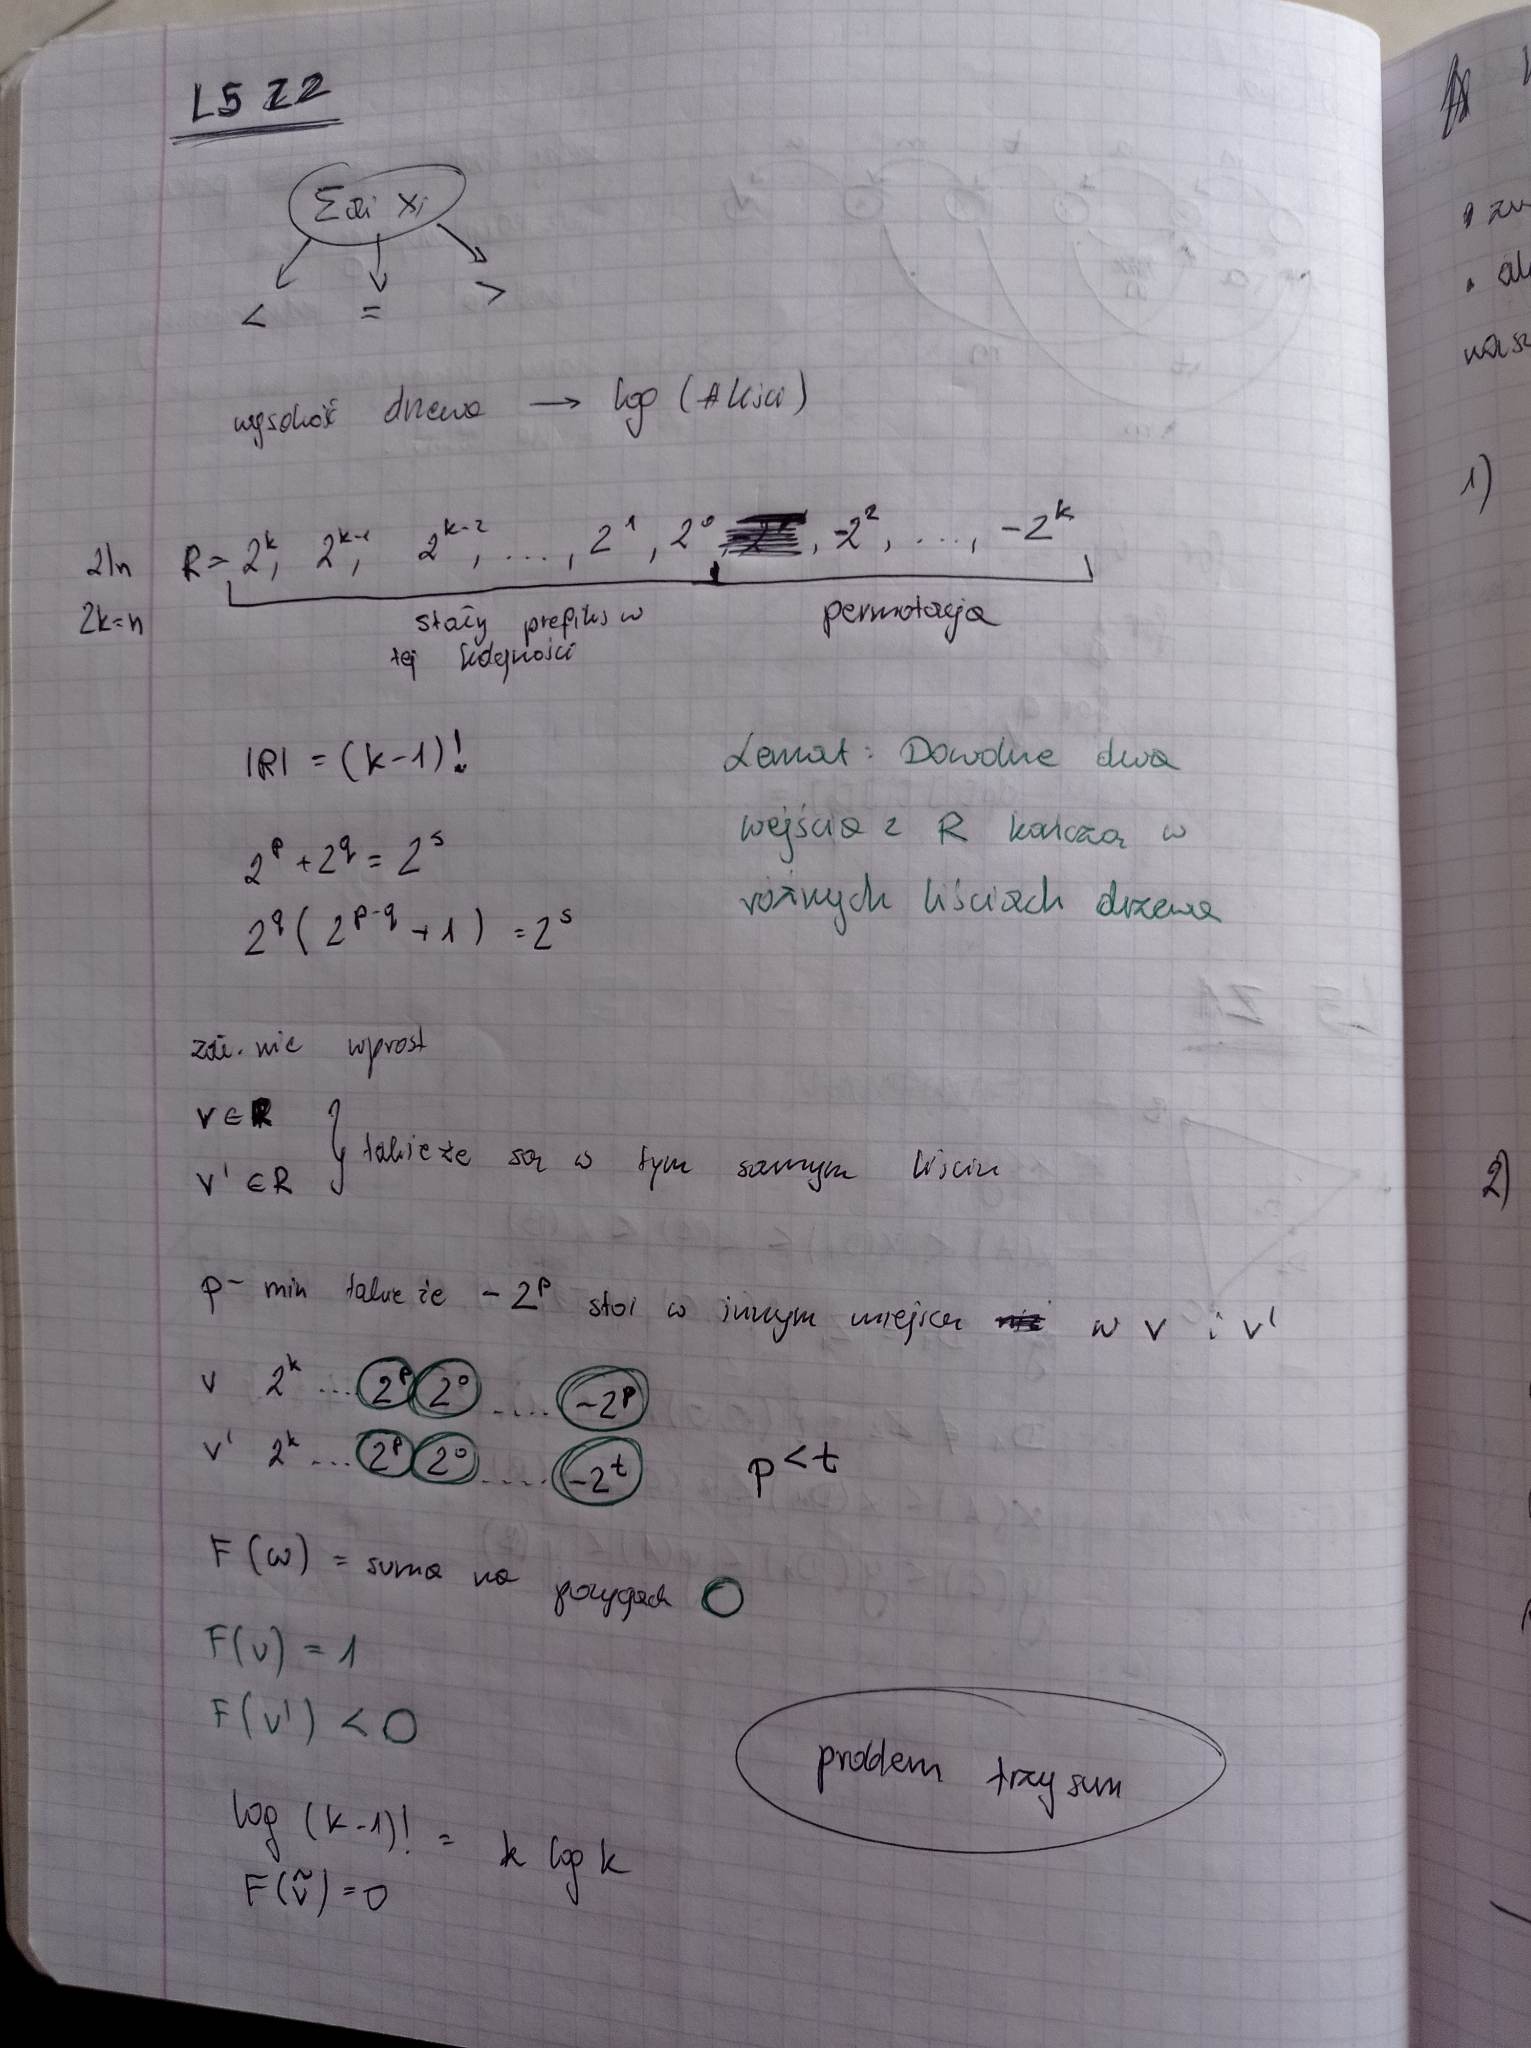 L5 Z2
Σ αi xi
< = >
wysokość drzewa → log (# liści)
2|n R = 2^k, 2^{k-1}, 2^{k-2}, ...., 2^1, 2^0, -2^2, ...., -2^k
2k=n
stały prefiks w permutacja
tej kolejności
|R| = (k-1)!
Lemat: Dowolne dwa
wejścia z R kończą w
różnych liściach drzewa
2^p + 2^q = 2^s
2^q (2^{p-q} + 1) = 2^s
zał. nie wprost
v ∈ R
v' ∈ R
takie że są w tym samym liściu
p - min takie że -2^p stoi w innym miejscu w v i v'
v 2^k ... 2^p 2^0 .... -2^p
v' 2^k ... 2^p 2^0 .... -2^t p < t
F(w) = suma na pozycjach O
F(v) = 1
F(v') < 0
problem trzy sum
log (k-1)! = k log k
F(ṽ) = 0
1)
2)